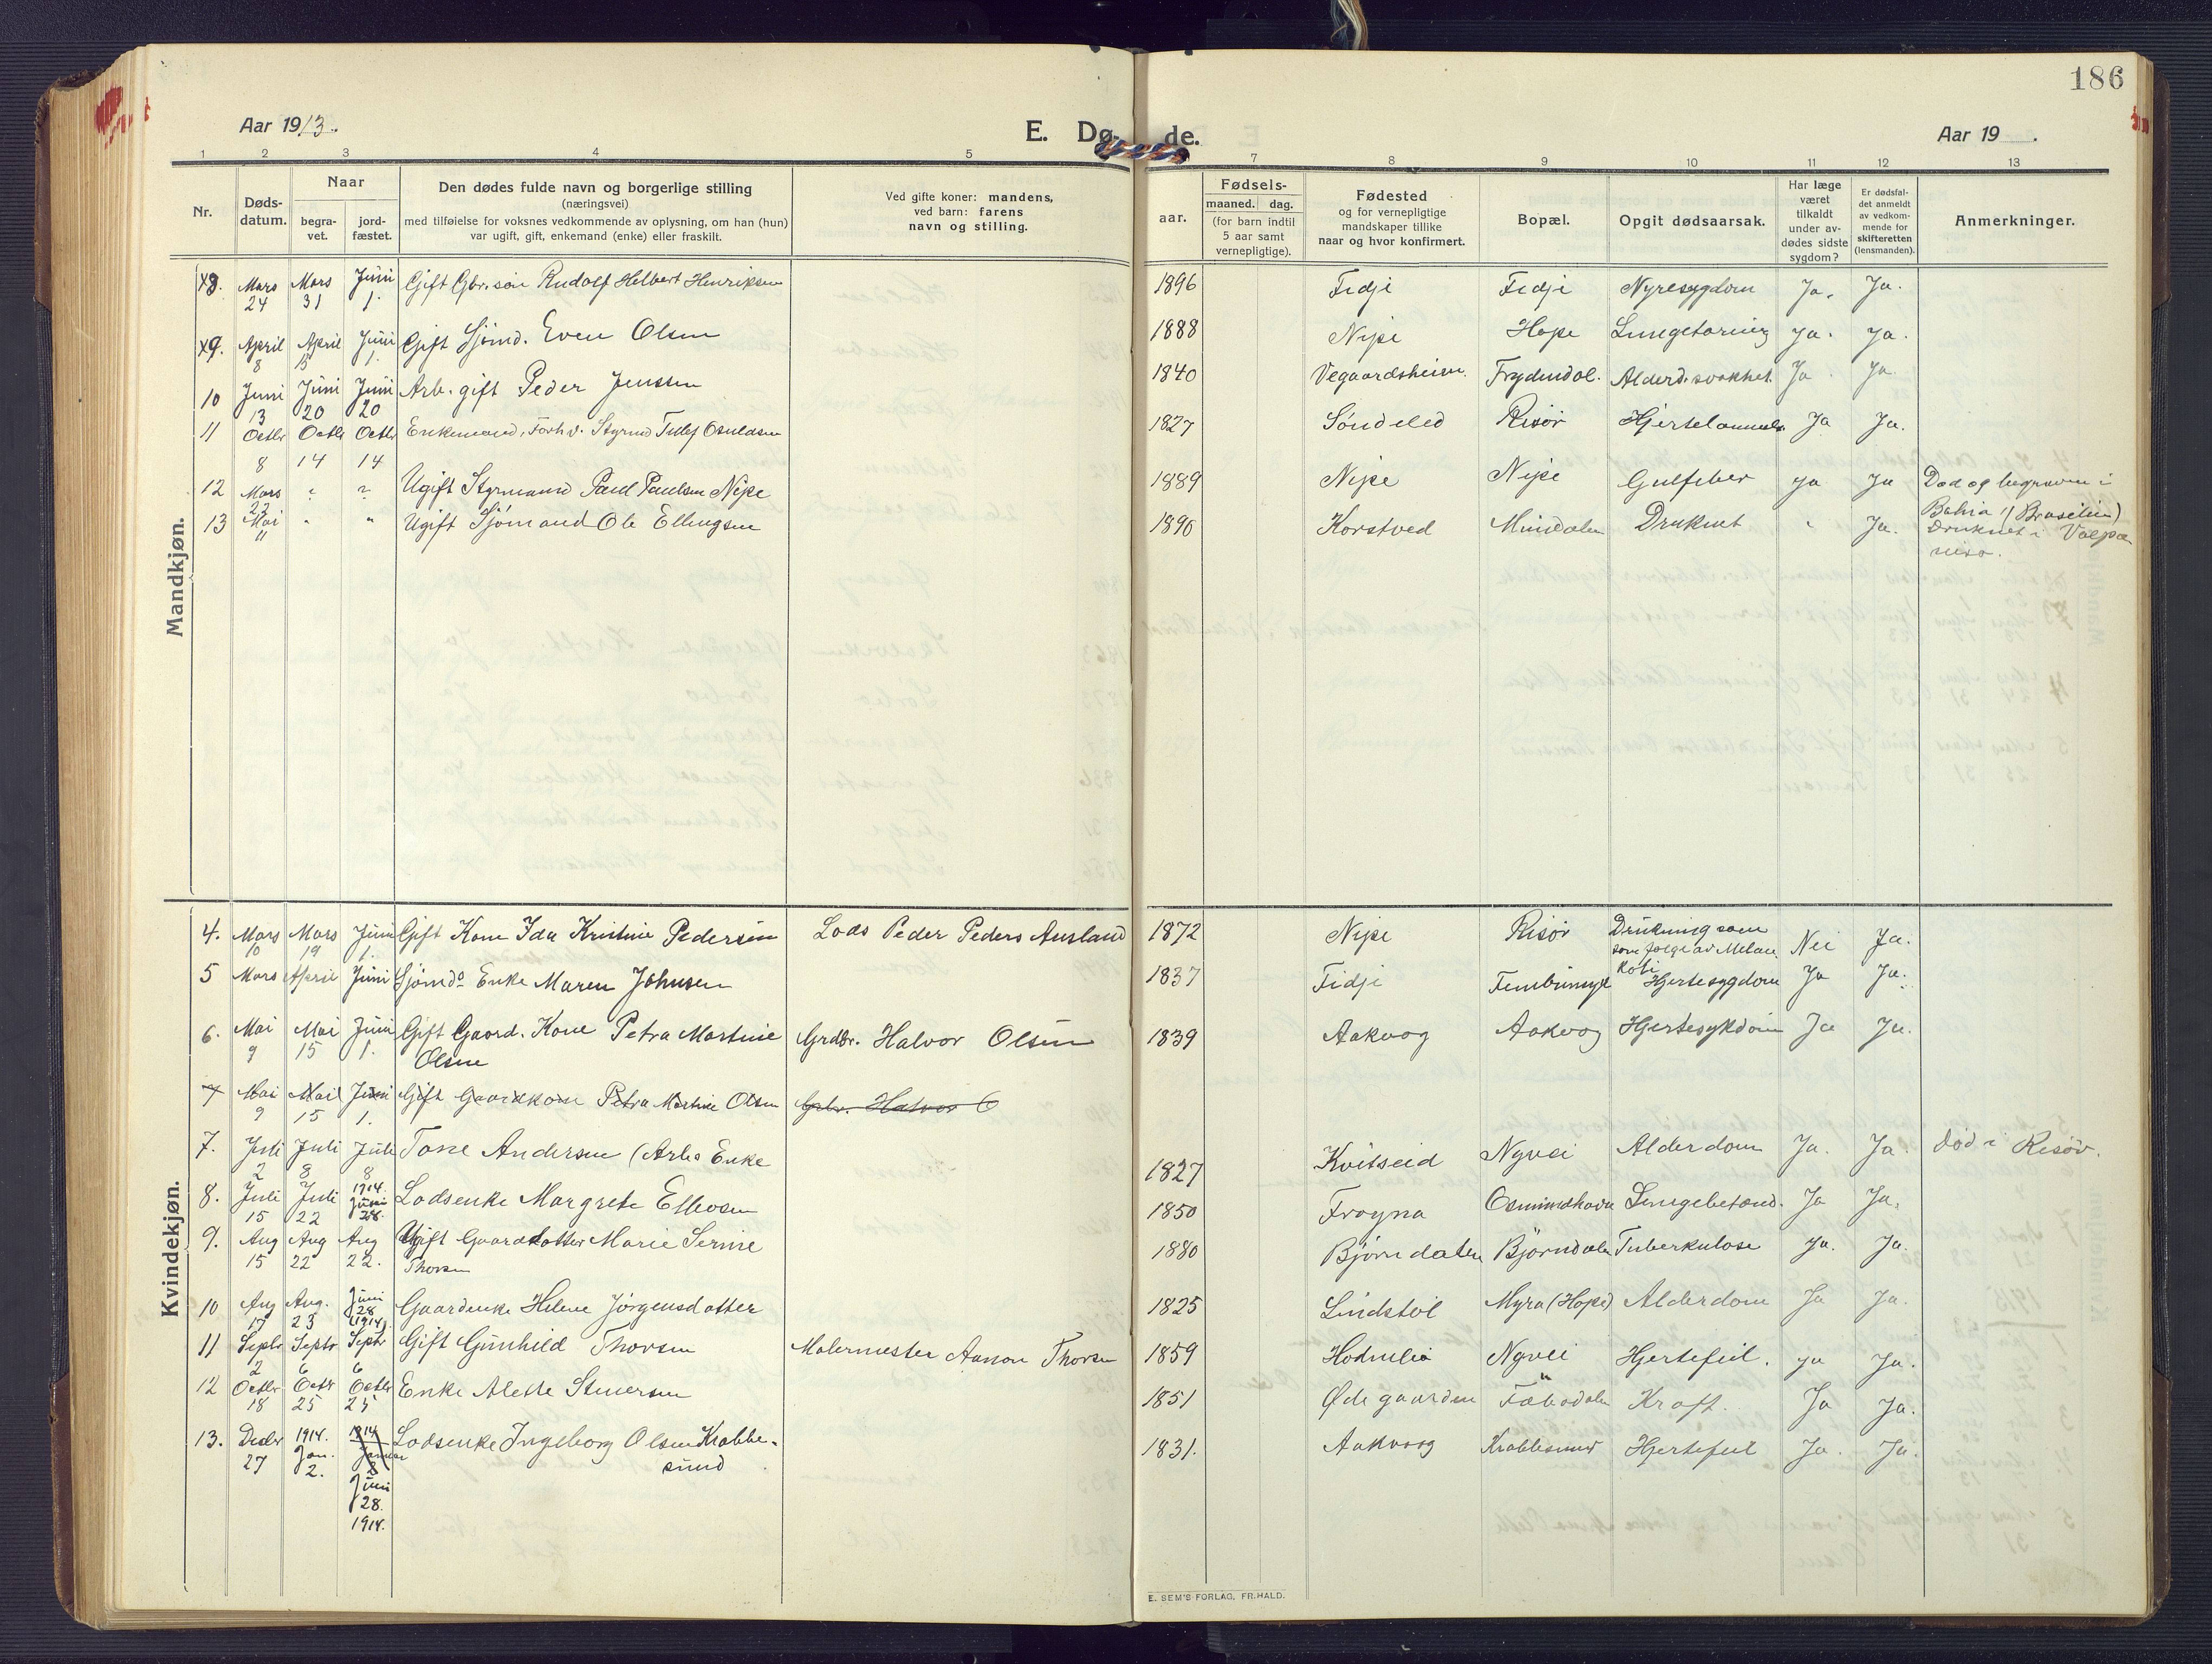 186
Aar 1913.
E. Dø- de.
Aar 19 .
1 2 3 4 5 7 8 9 10 11 12 13
Nr.
Døds-
datum.
Naar
begra-
vet.
jord-
fæstet.
Den dødes fulde navn og borgerlige stilling
(næringsvei)
med tilføielse for voksnes vedkommende av oplysning, om han (hun)
var ugift, gift, enkemand (enke) eller fraskilt.
Ved gifte koner: mandens,
ved barn: farens
navn og stilling.
aar.
Fødsels-
maaned. dag.
(for barn indtil
5 aar samt
vernepligtige).
Fødested
og for vernepligtige
mandskaper tillike
naar og hvor konfirmert.
Bopæl.
Opgit dødsaarsak.
Har læge
været
tilkaldt
under av-
dødes sidste
sygdom?
Er dødsfal-
det anmeldt
av vedkom-
mende for
skifteretten
(lensmanden).
Anmerkninger.
Mandkjøn.
x8. Mars 24 Mars 31 Juni 1. Gift Gbr.søn Rudolf Helbert Henriksen 1896 Fidje Fidje Nyresygdom Ja. Ja.
x9. April 8 April 15 Juni 1. Gift Sjømd. Even Olsen 1888 Nipe Hope Lungetæring Ja. Ja.
10 Juni 13 Juni 20 Juni 20 Arb. gift Peder Jenssen 1840 Vegaardsheien. Frydendal. Alderd.svakhet. Ja Ja
11 Octbr 8 Octbr 14 Octbr 14 Enkemand, Forhv. Styrmd Tellef Osuldsen 1827 Søndeled Risør Hjertelammelse Ja Ja.
12 Mars 23 " " Ugift Styrmand Paul Paulsen Nipe 1889 Nipe Nipe Gulfeber Ja Ja Død og begraven i
Bahia (Brasilien)
13 Mai 11 " " Ugift Sjømand Ole Ellingsen 1890 Korstved Mindalen Druknet " Ja. Druknet i Valpa
raiso.
Kvindekjøn.
4. Mars 10 Mars 19 Juni 1. Gift Kone Ida Kristine Pedersen Lods Peder Peders Ausland 1872 Nipe Risør Drukning som
som følge av Melan
koli Nei Ja.
5 Mars April Juni Sjømds Enke Maren Johnsen 1837 Fidje Hjertesygdom Ja Ja.
6. Mai 9 Mai 15 Juni 1. Gift Gaard. Kone Petra Martine
Olsen Grdbr. Halvor Olsen 1839 Aakvog Aakvog Hjertesykdom Ja Ja.
7 Mai 9 Mai 15 Juni 1. Gift Gaardkone Petra Martine Olsen Grbr. Halvor O
7. Juli 2 Juli 8 Juli 8 Tone Andersen (Arbs Enke 1827 Kvitseid Nyvei Alderdom Ja. Ja. død i Risør.
8. Juli 15 Juli 22 1914. Juni 28. Lodsenke Margrete Ellevsen 1850 Frøyna Osmundhavn Lungebetænd. Ja Ja.
9. Aug 15 Aug 22 Aug 22. Ugift Gaarddatter Marie Serine
Thorsen 1880 Bjørndalen Bjørndalen Tuberkulose Ja. Ja.
10 Aug 17 Aug. 23 Juni 28 (1914) Gaardenke Helene Jørgensdatter 1825 Lindstøl Myra (Hope) Alderdom Ja Ja.
11 Septbr 2 Septbr 6 Septbr 6 Gift Gunhild Thorsen Malermester Aanon Thorsen 1859 Hødnelia Nyvei Hjertefeil. Ja Ja.
12 Octbr 18 Octbr 25 Octbr 25 Enke Alette Stiersen 1851 Ødegaarden Kræft. Ja Ja.
13. Decbr 27 1914. Jan. 2. 1914 Januar 2 Juni 28. 1914. Lodsenke Ingeborg Olsen Krabbe-
sund 1831. Aakvaag Krabbesund Hjertefeil Ja. Ja.
E. SEM'S FORLAG, FR.HALD.